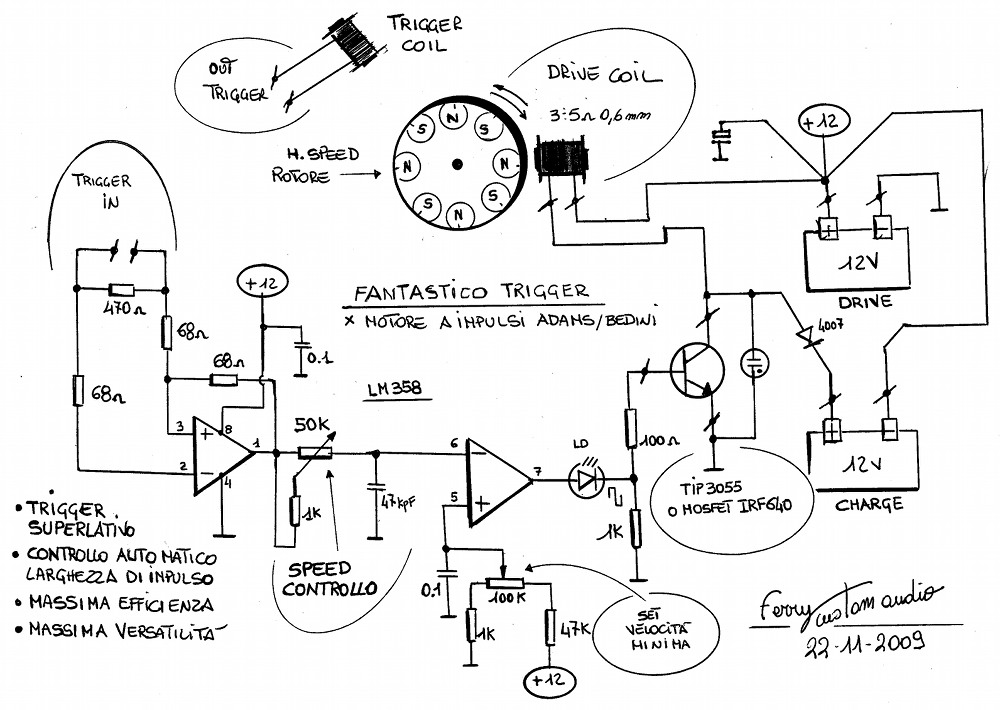 TRIGGER
COIL
OUT
TRIGGER
DRIVE COIL
3÷5Ω 0,6mm
H. SPEED
ROTORE
N
S
N
S
N
S
N
S
+12
12V
DRIVE
TRIGGER
IN
470Ω
68Ω
68Ω
68Ω
+12
0.1
FANTASTICO TRIGGER
X MOTORE A IMPULSI ADAMS/BEDINI
LM358
4007
12V
CHARGE
3
8
1
2
4
+
-
50K
1K
47KPF
SPEED
CONTROLLO
6
5
7
-
+
LD
100Ω
1K
TIP3055
O MOSFET IRF640
0.1
100K
1K
47K
+12
SET
VELOCITÀ
MINIMA
• TRIGGER
SUPERLATIVO
• CONTROLLO AUTOMATICO
LARGHEZZA DI IMPULSO
• MASSIMA EFFICIENZA
• MASSIMA VERSATILITÀ
Ferry custom audio
22-11-2009